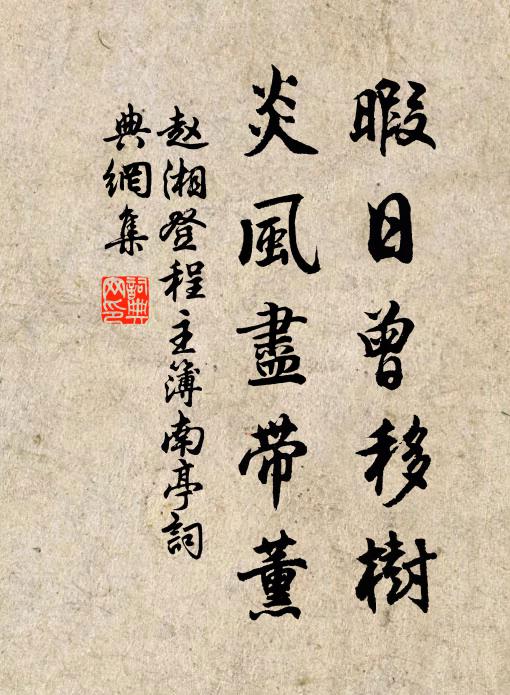 暇日曾移樹
炎風盡带薰
赵湘登程主簿南亭詞
典網集
詞典网印